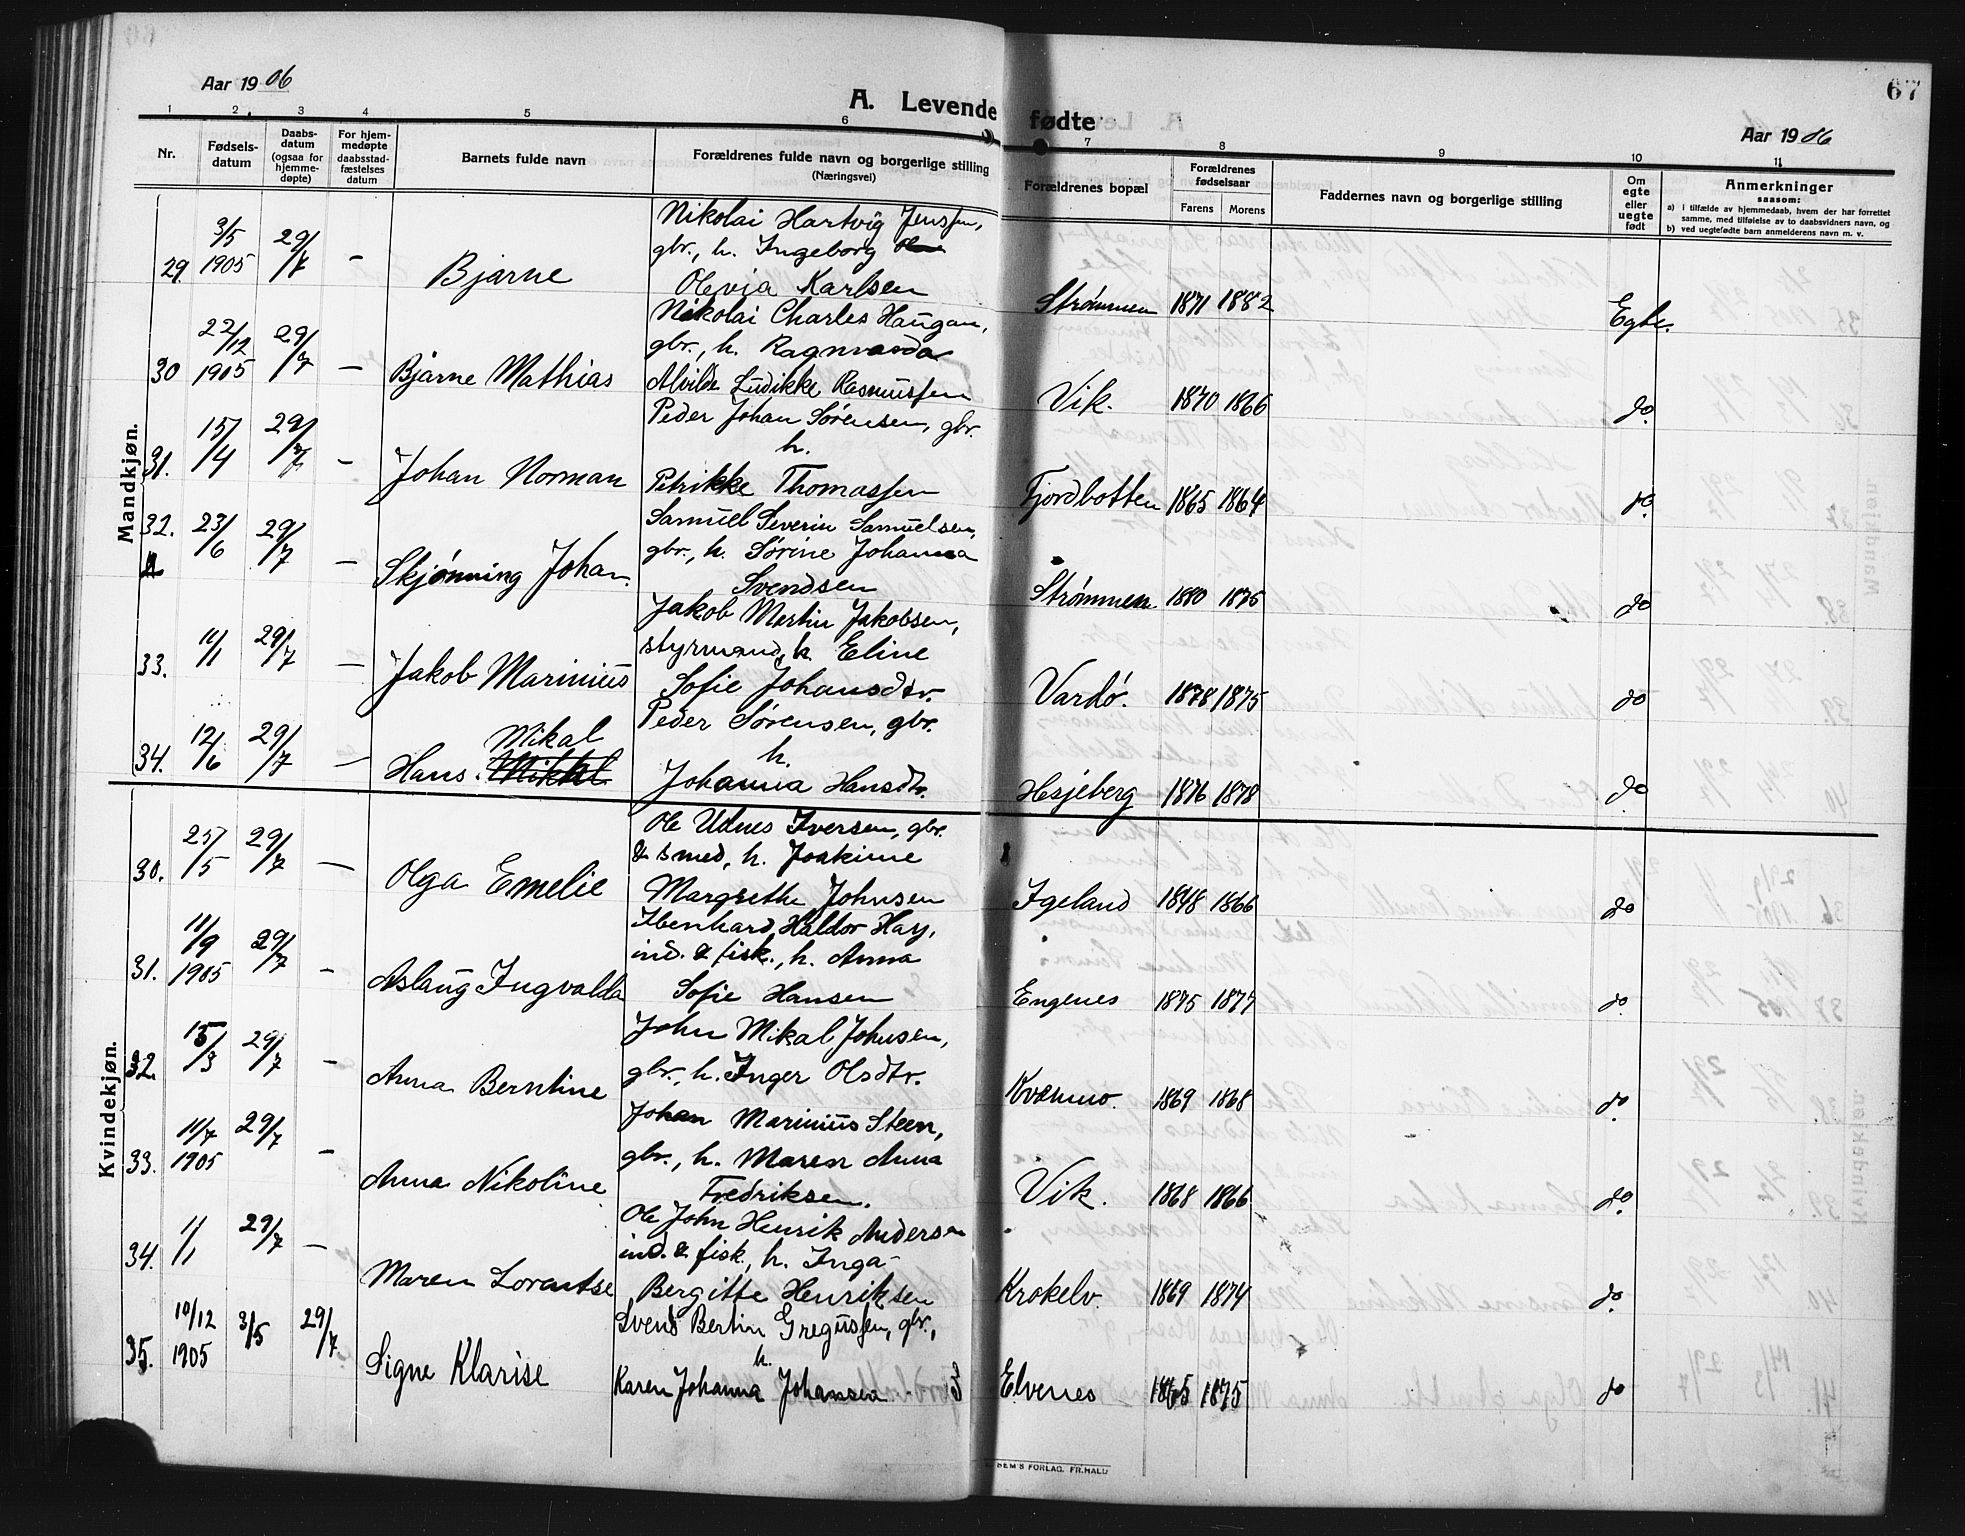 67
Aar 1906
A. Levende fødte
Aar 1906
1 2 3 4 5 6 7 8 9 10 11
Nr.
Fødsels-
datum
Daabs-
datum
(ogsaa for
hjemme-
døpte)
For hjem-
medøpte
daabsstad-
fæstelses
datum
Barnets fulde navn
Forældrenes fulde navn og borgerlige stilling
(Næringsvei)
Forældrenes bopæl
Forældrenes
fødselsaar
Farens Morens
Faddernes navn og borgerlige stilling
Om
egte
eller
uegte
født
Anmerkninger
saasom:
a) i tilfælde av hjemmedaab, hvem der har forrettet
samme, med tilføielse av to daabsvidners navn, og
b) ved uegtefødte barn anmelderens navn m. v.
Mandkjøn.
Nikolai Hartvig Jenssen,
29. 3/5 1905 29/7 – Bjarne gbr., h. Ingeborg
Olevia Karlsen Strømmen 1871 1882 Egte.
Nikolai Charles Haugan,
30 22/12 1905 29/7 – Bjarne Mathias gbr., h. Ragnvarda
Alvilde Ludikke Rasmussen Vik. 1870 1866 do.
Peder Johan Sørensen, gbr.
h.
31. 15/4 29/7 – Johan Norman Petrikke Thomassen Fjordbotten 1865 1864 do.
Samuel Severin Samuelsen,
32. 23/6 29/7 – Skjønning Johan. gbr., h. Sørine Johanna
Svendsen Strømmen. 1880 1875 do
Jakob Martin Jakobsen,
33. 11/1 29/7 – Jakob Marinius styrmand, h. Eline
Sofie Johansdtr. Vardø. 1878 1875 do
Peder Sørensen, gbr.
Mikal
h.
34. 12/6 29/7 – Hans Mikkal Johanna Hansdtr. Hesjeberg 1876 1878 do
Kvindekjøn.
Ole Udnes Iversen, gbr.
30. 25/5 29/7 – Olga Emelie & smed, h. Joakime
Margrethe Johnsen Igeland 1848 1866 do
Ibenhard Haldor Hay,
31. 11/9 1905 29/7 – Aslaug Ingvalda ind. & fisk., h. Anna
Sofie Hansen Engenes 1875 1877 do.
John Mikal Johnsen,
32. 15/3 29/7 – Anna Berntine gbr., h. Inger Olsdtr. Kvæmmo. 1869 1868 do.
Johan Marinius Steen,
33. 11/7 1905 29/7 – Anna Nikoline gbr., h. Maren Anna
Fredriksen. Vik. 1868 1866 do.
Ole John Henrik Andersen
34. 1/1 29/7 – Maren Lorentse ind. & fisk., h. Inga
Bergitte Henriksen Krokelv. 1869 1874 do.
Svend Bertin Gregussen, gbr.,
h.
35. 10/12 1905 3/5 29/7 Signe Klarise Karen Johanna Johansen Elvenes 1865 1875 do
SEM'S FORLAG, FR.HALD